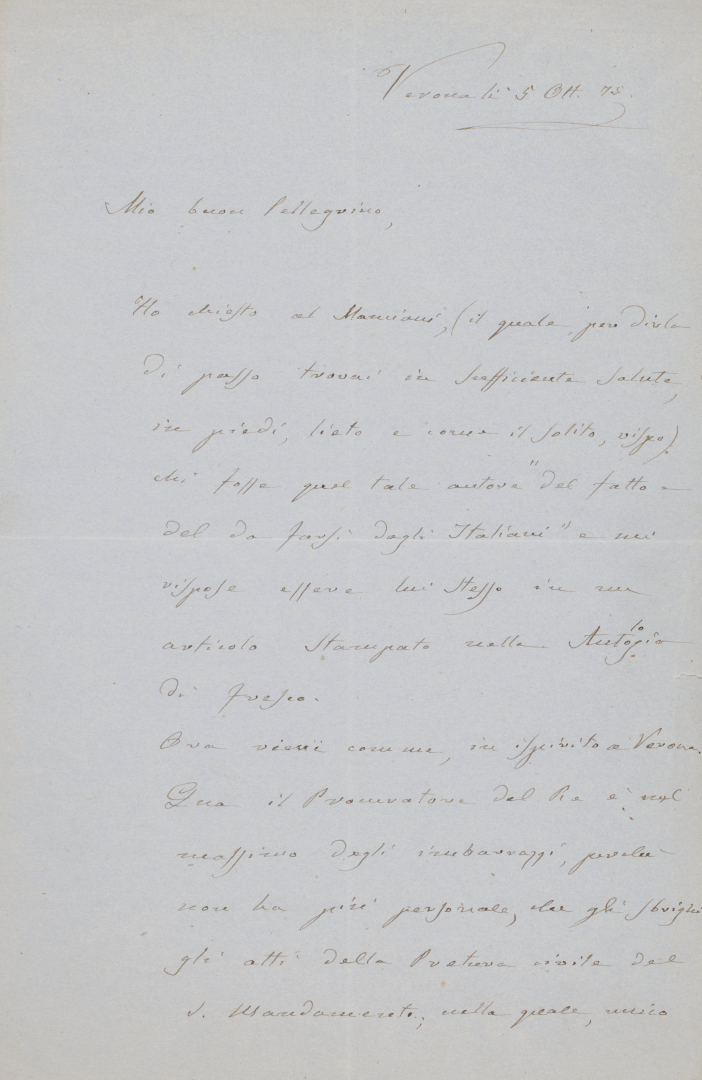 Verona li 5 Ott. 75.
Mio buon Pellegrino,
Ho chiesto al Mancioni, (il quale, per dirla
di passo trovai in sufficiente salute,
in piedi, lieto e come il solito, vispo)
chi fosse quel tale autore "del fatto e
del da farsi dagli Italiani" e mi
rispose essere lui stesso in un
articolo stampato nella
di fresco.
Ora vieni comme, in ispirito a Verona.
Qua il Procuratore del Re è nel
massimo degli imbarazzi, perché
non ha più personale, che gli sbrighi
gli atti della Pretura civile del
Mandamento, nella quale, unico